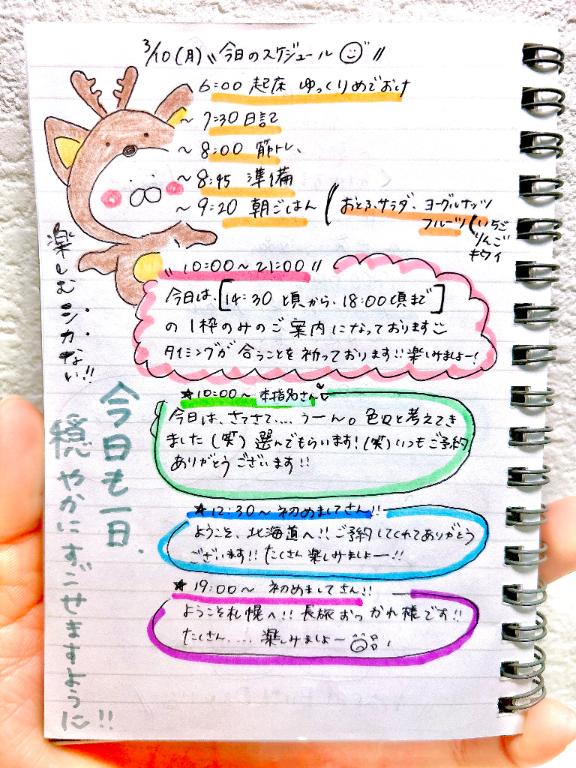 3/10(月)〝今日のスケジュール〟
6:00 起床 ゆっくりめでおけ
～7:30 日記
～8:00 筋トレ、
～8:45 準備
～9:20 朝ごはん (おとふ、サラダ、ヨーグルナッツ
フルーツ(いちご
りんご
キウイ
〝10:00～21:00〟
今日は、[14:30 頃から、18:00頃まで]
の1枠のみのご案内になっております
タイミングが合うことを祈っております!!楽しみましょー!
★10:00～ 本指名さん♡
今日は、さてさて....うーん。色々と考えてき
ました(笑)選んでもらいます!(笑)いつもご予約
ありがとうございます!!
★12:30～ 初めましてさん!!
ようこそ、北海道へ!!ご予約してくれてありがとう
ございます!!たくさん楽しみましょー!!
★19:00～ 初めましてさん!!
ようこそ札幌へ!!長旅おつかれ様です!!
たくさん.....楽しみましょー
楽しむシカない!!
今日も一日、
穏やかにすごせますように!!